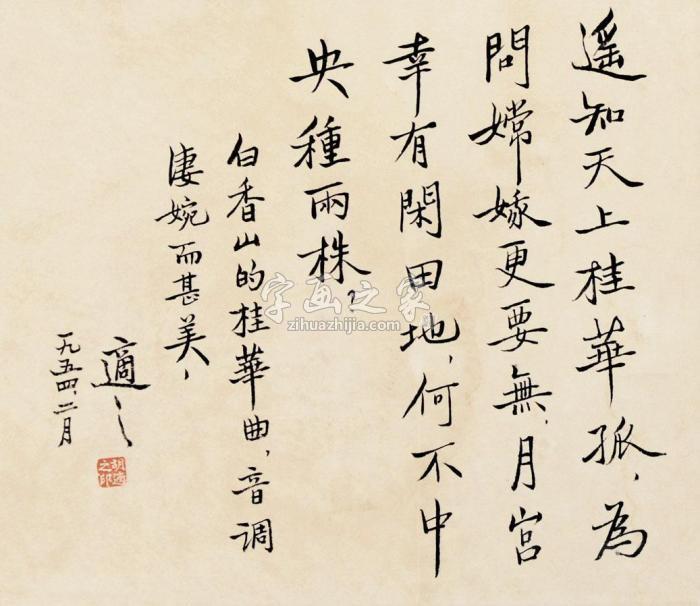 遙知天上桂華孤，為
問嫦娥更要無，月宮
幸有閑田地，何不中
央種兩株？
白香山的桂華曲，音调
淒婉而甚美，
適之
一九五四、二月
胡適之印
字画之家
zihuazhijia.com